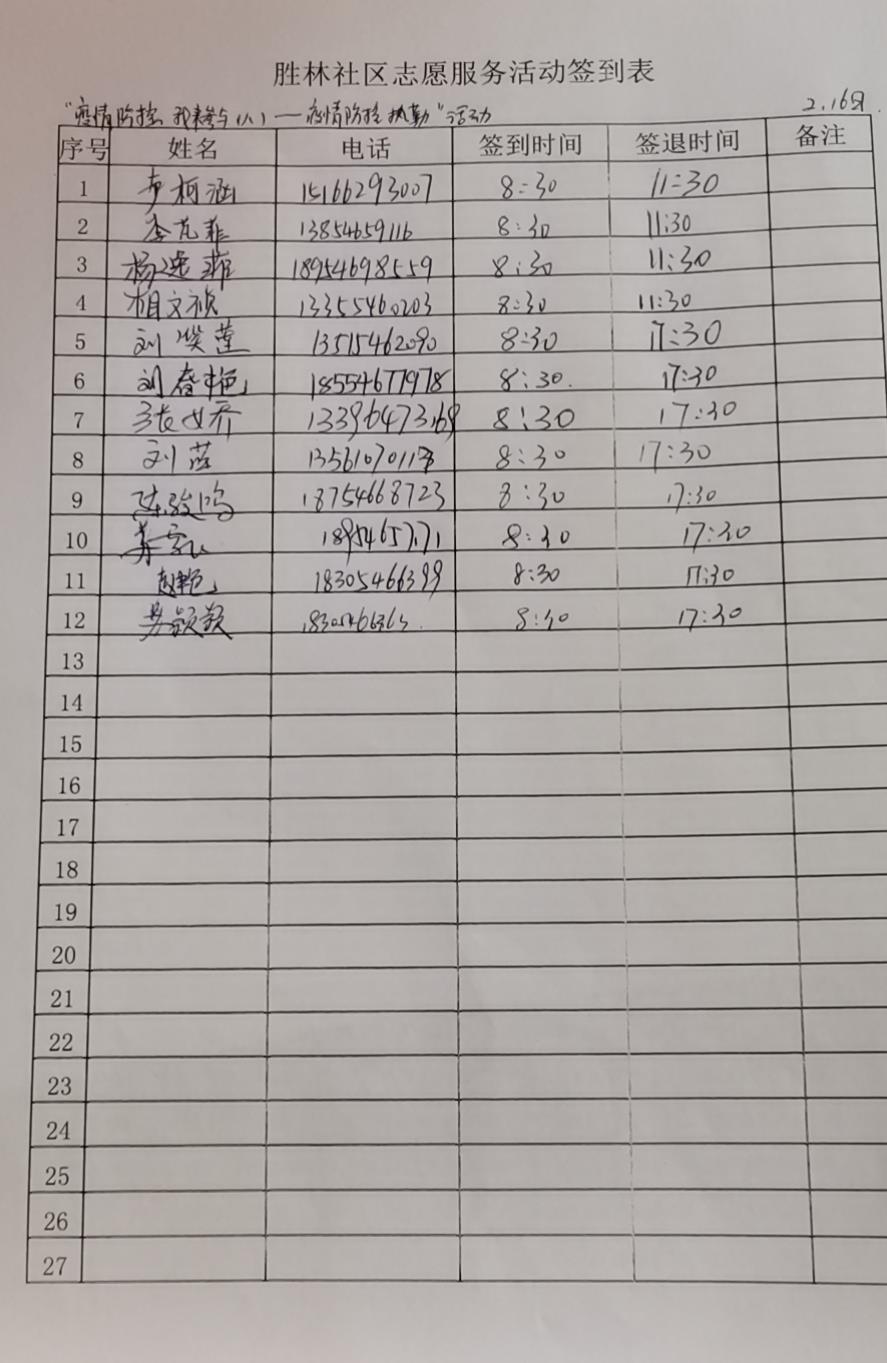 胜林社区志愿服务活动签到表
"疫情防控 我来参与(八)——疫情防控执勤"活动 2.16日
序号 姓名 电话 签到时间 签退时间 备注
1 李柯涵 15166293007 8:30 11:30
2 李芃菲 13854659116 8:30 11:30
3 杨逸菲 18954698559 8:30 11:30
4 相文祯 13355460203 8:30 11:30
5 刘 莲 13515462090 8:30 17:30
6 刘春艳 18554677978 8:30. 17:30
7 张世乔 13396473169 8:30 17:30
8 刘蕊 8:30 17:30
9 陈骏鸣 18754668723 8:30 17:30
10 8:30 17:30
11 赵艳 18305466399 8:30 17:30
12 颖颖 8:30 17:30
13
14
15
16
17
18
19
20
21
22
23
24
25
26
27